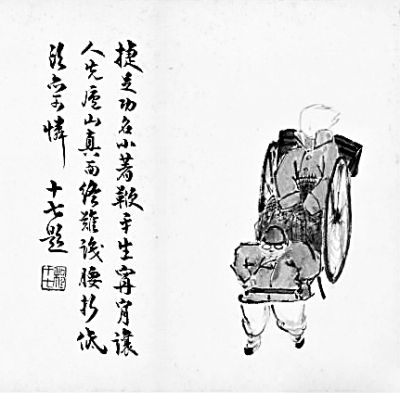 捷足功名小著鞭平生甯肯讓
人先廬山真面終難識腰折低
頭亦可憐 十七題